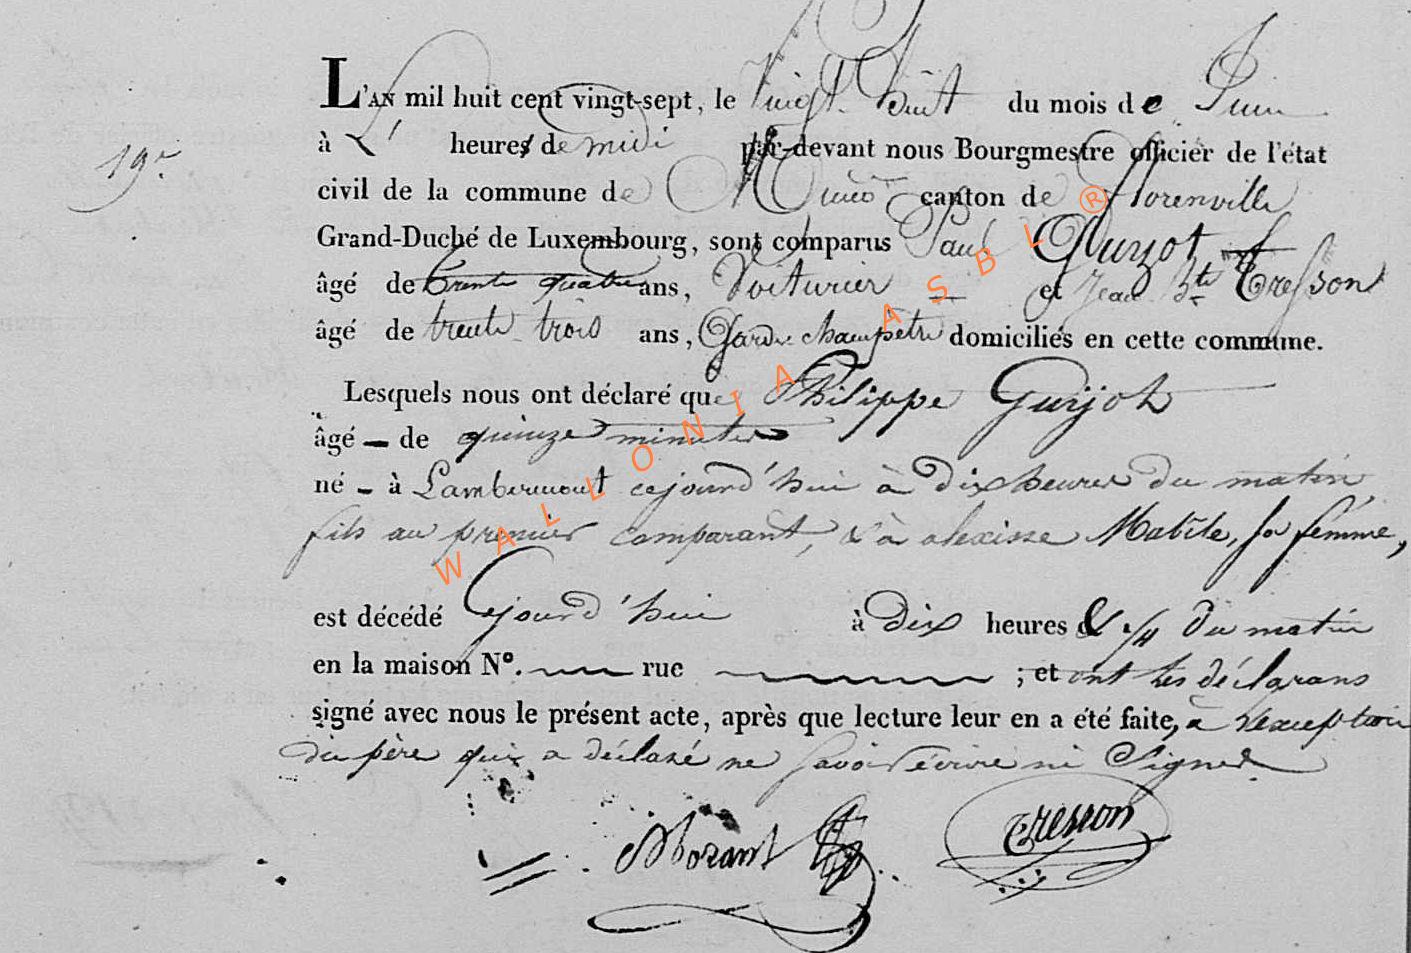 L'AN mil huit cent vingt-sept, le Vingt huit du mois de Juin
19e.
à L' heure de midi par-devant nous Bourgmestre officier de l'état
civil de la commune de Muno canton de florenville
Grand-Duché de Luxembourg, sont comparus Paul Guyot
âgé de trente quatre ans, Voiturier et Jean Bte Tresson
âgé de trente trois ans, Garde champêtre domiciliés en cette commune.
Lesquels nous ont déclaré que Philippe Guyot
âgé de quinze minutes
né à Lambermont cejourd'hui à dix heures du matin
fils au premier comparant, & à alexisse Mabile, sa femme,
est décédé Cejourd'hui à dix heures & 1/4 du matin
en la maison No. rue ; et ont les déclarans
signé avec nous le présent acte, après que lecture leur en a été faite, a l'exception
du père qui a déclaré ne savoir écrire ni Signer.
Morant Tresson
WALLONIA ASBL ®